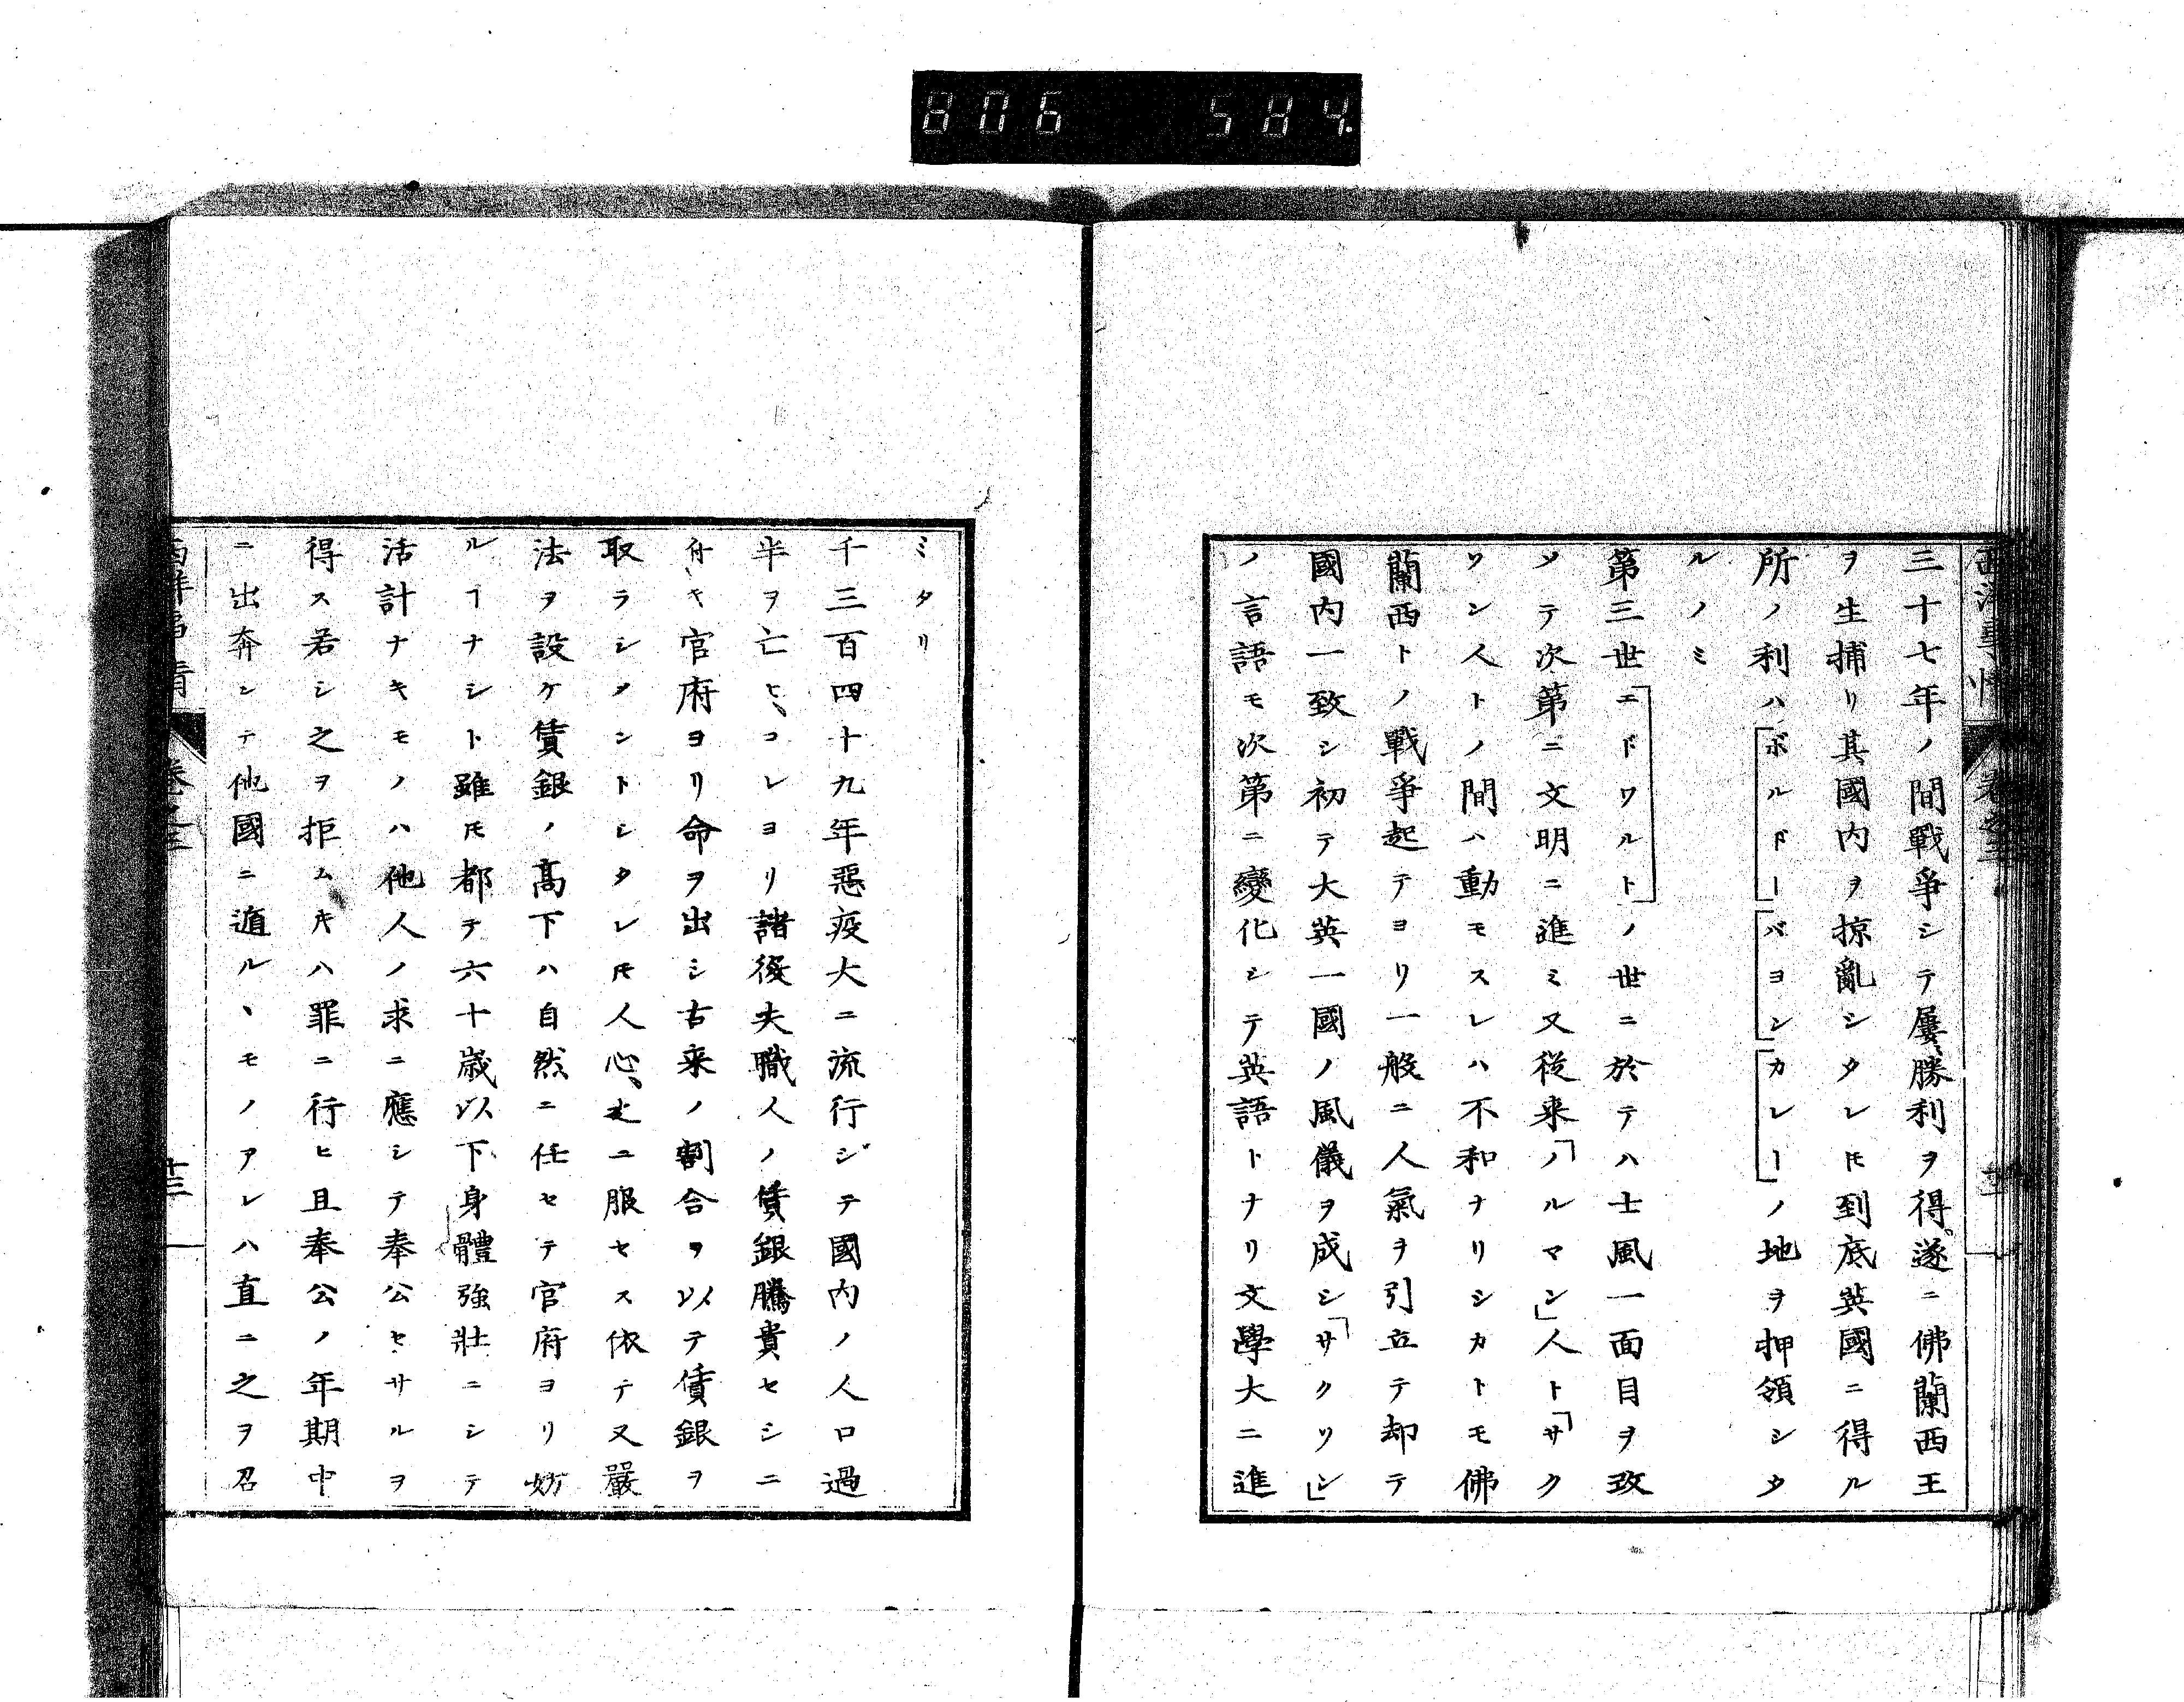 806 584.
西洋事情 卷之三
三十七年ノ間戰爭シテ屢〻勝利ヲ得。遂ニ佛蘭西王
ヲ生捕リ其國内ヲ掠亂シタレ𪜈到底英國ニ得ル
所ノ利ハ「ボルドー」「バヨン」「カレー」ノ地ヲ押領シタ
ルノミ
第三世「エドワルト」ノ世ニ於テハ士風一面目ヲ改
メテ次第ニ文明ニ進ミ又從来「ノルマン」人ト「サク
ソン人トノ間ハ動モスレハ不和ナリシカトモ佛
蘭西トノ戰爭起テヨリ一般ニ人氣ヲ引立テ却テ
國内一致シ初テ大英一國ノ風儀ヲ成シ「サクソン」
ノ言語モ次第ニ變化シテ英語トナリ文學大ニ進
ミタリ
千三百四十九年惡疫大ニ流行シテ國内ノ人口過
半ヲ亡ヒ、コレヨリ諸役夫職人ノ賃銀騰貴セシニ
付キ官府ヨリ命ヲ出シ古来ノ割合ヲ以テ賃銀ヲ
取ラシメントシタレ𪜈人心、之ニ服セス依テ又嚴
法ヲ設ケ賃銀ノ高下ハ自然ニ任セテ官府ヨリ妨
ルヿナシト雖𪜈都テ六十歳以下、身體強壯ニシテ
活計ナキモノハ他人ノ求ニ應シテ奉公セサルヲ
得ス若シ之ヲ拒ムキハ罪ニ行ヒ且奉公ノ年期中
ニ出奔シテ他國ニ遁ルヽモノアレハ直ニ之ヲ召
西洋事情 卷之三 十三